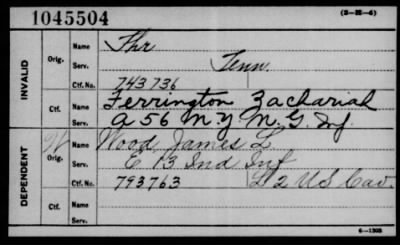 1045504
(3-22-4)
INVALID
Orig.
Name Thr
Serv. Tenn.
Ctf. No. 743736
Ctf.
Name Ferrington Zachariah
Serv. A 56 N Y N. G. Inf
DEPENDENT
W
Orig.
Name Wood James L
Serv. E 13 Ind Inf
Ctf. No. 793763 L 2 US Cav.
Ctf.
Name
Serv.
6-1303